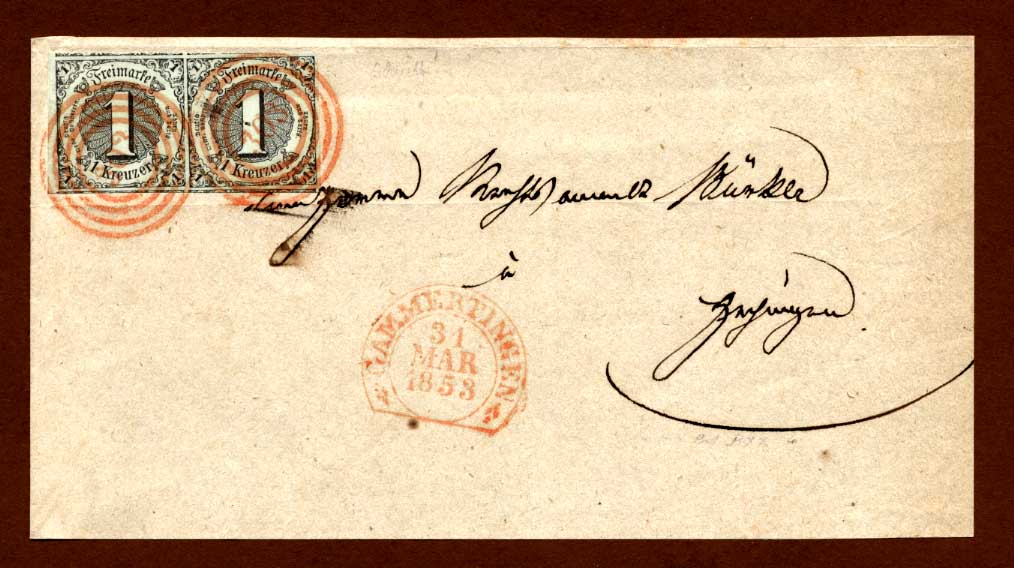 Freimarke Freimarke
1 1
1 Kreuzer 1 Kreuzer
Herrn Rechtsanwalt Bürkle
à
Hechingen
GAMMERTINGEN
31
MAR
1853